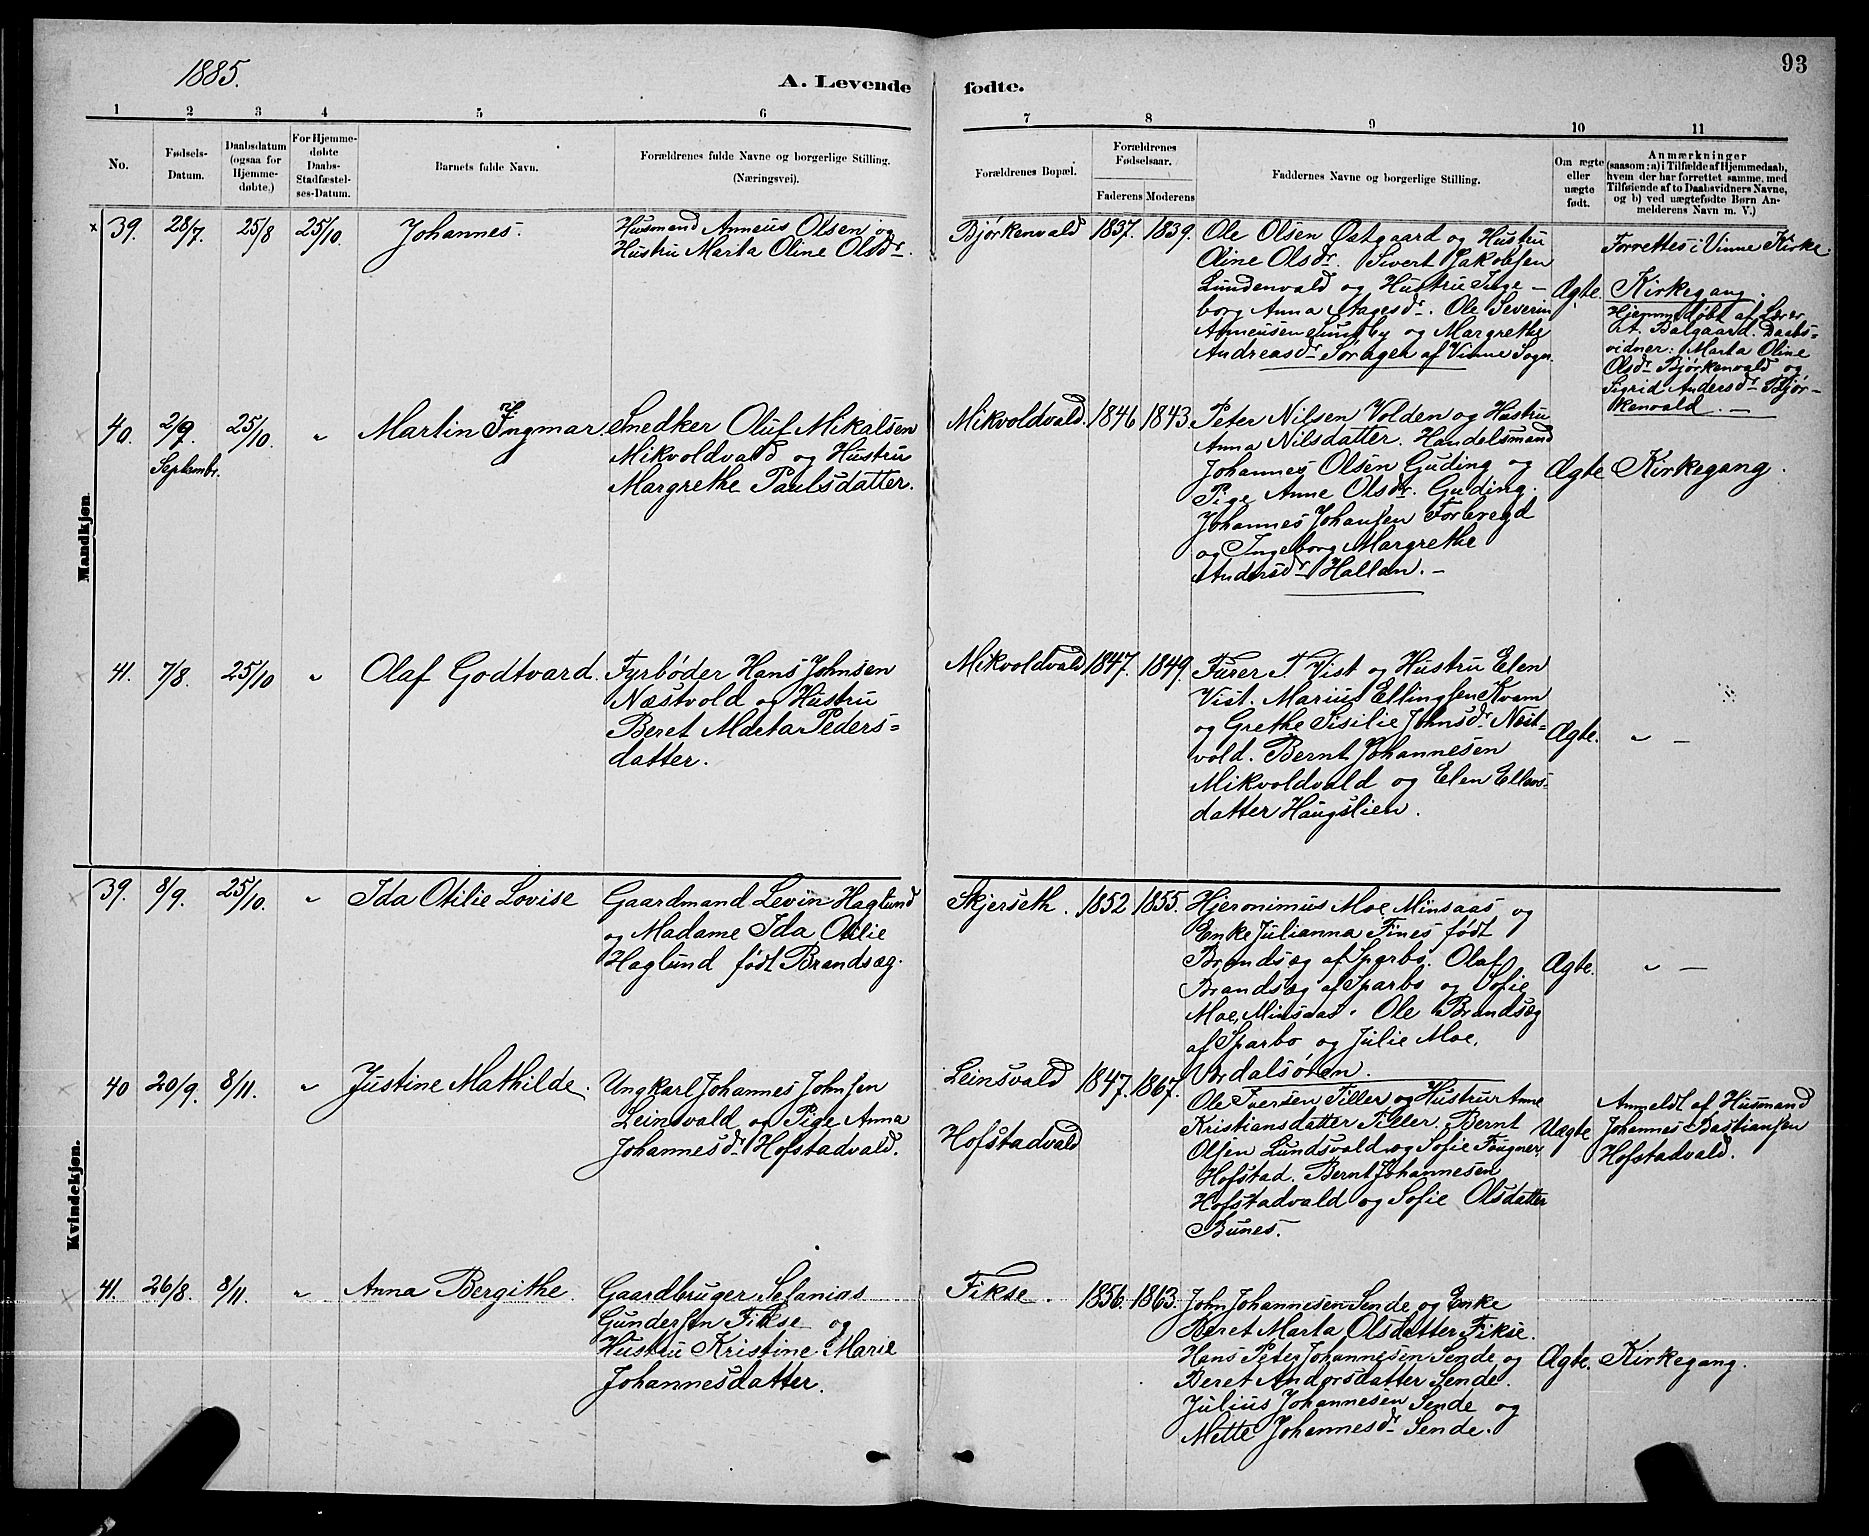 1885.
A. Levende fødte.
93
1 2 3 4 5 6 7 8 9 10 11
No.
Fødsels-Datum.
Daabsdatum (ogsaa for Hjemme-døbte.)
For Hjemme-døbte Daabs-Stadfæstel-ses-Datum.
Barnets fulde Navn.
Forældrenes fulde Navne og borgerlige Stilling. (Næringsvei).
Forældrenes Bopæl.
Forældrenes Fødselsaar.
Faderens Moderens
Faddernes Navne og borgerlige Stilling.
Om ægte eller uægte født.
Anmærkninger
(saasom: a) i Tilfælde af Hjemmedaab,
hvem der har forrettet samme, med
Tilføiende af to Daabsvidners Navne,
og b) ved uægtefødte Børn An-
melderens Navn m. V.)
Mandkjøn.
39. 28/7. 25/8 25/10. Johannes.
Husmand Anneus Olsen og
Hustru Marta Oline Olsdr.
Bjørkenvald 1837. 1839.
Ole Olsen Østgaard og Hustru
Oline Olsdr. Sivert Jakobsen
Lundenvald og Hustru Inge-
borg Anna Aagesdr. Ole Severin
Anneusen Sundby og Margrethe
Andreasdr af Vinne Sogn.
Ægte.
Forrettes i Vinne Kirke.
Kirkegang.
Hjemmedøbt af Lærer
A. Balgaard. Daabs-
vidner: Marta Oline
Olsdr Bjørkenvald og
Sigrid Andersdr Bjør-
kenvald. —
40. 2/9. 25/10. „ Martin Ingmar.
Septembr.
Snedker Oluf Mikalsen
Mikvoldvald og Hustru
Margrethe Paulsdatter.
Mikvoldvald. 1846 1843.
Peter Nilsen Volden og Hustru
Anna Nilsdatter. Handelsmand
Johannes Olsen Guding og
Pige Anne Olsdr. Guding.
Johannes Johansen Forbregd
og Ingeborg Margrethe
Andersdr Hallan. —
Ægte Kirkegang.
41. 7/8. 25/10 „ Olaf Godtvard.
Fyrbøder Hans Johnsen
Næstvold og Hustru
Beret Marta Peders-
datter.
Mikvoldvald 1847. 1849.
Furer T. Vist og Hustru Elen
Vist. Marius Ellingsen Kvam
og Grethe Sisilie Johnsdr Næst-
vold. Bernt Johannesen
Mikvoldvald og Elen Ellevs-
datter Haugslien.
Ægte. „ —
Kvindekjøn.
39. 8/9. 25/10. „ Ida Otilie Lovise
Gaardmand Levin Haglund
og Madame Ida Otilie
Haglund født Brandsæg.
Skjerseth. 1852 1855.
Hjeronimus Moe Minsaas og
Enke Julianna Fines født
Brandsæg af Sparbo. Olaf
Brandsæg af Sparbo og Sofie
Moe, Minsaas. Ole Brandsæg
af Sparbo og Julie Moe,
Værdalsøren.
Ægte. „ —
40 20/9. 8/11. „ Justine Mathilde.
Ungkarl Johannes Johnsen
Leinsvald og Pige Anna
Johannesdr Hofstadvald.
Leinsvald 1847. 1867.
Hofstadvald
Ole Iversen Tiller og Hustru Anne
Kristiansdatter Tiller. Bernt
Olsen Lundsvald og Sofie Fougner
Hofstad. Bernt Johannesen
Hofstadvald og Sofie Olsdatter
Bunes.
Uægte
Anmeldt af Husmand
Johannes Bastiansen
Hofstadvald.
41. 26/8. 8/11. „ Anna Bergithe.
Gaardbruger Sefanias
Gundersen Fikse og
Hustru Kristine Marie
Johannesdatter.
Fikse. 1856. 1863.
John Johannesen Sende og Enke
Beret Marta Olsdatter Fikse.
Hans Peter Johannesen Sende og
Beret Andorsdatter Sende.
Julius Johannesen Sende og
Mette Johannesdr Sende.
Ægte. Kirkegang.